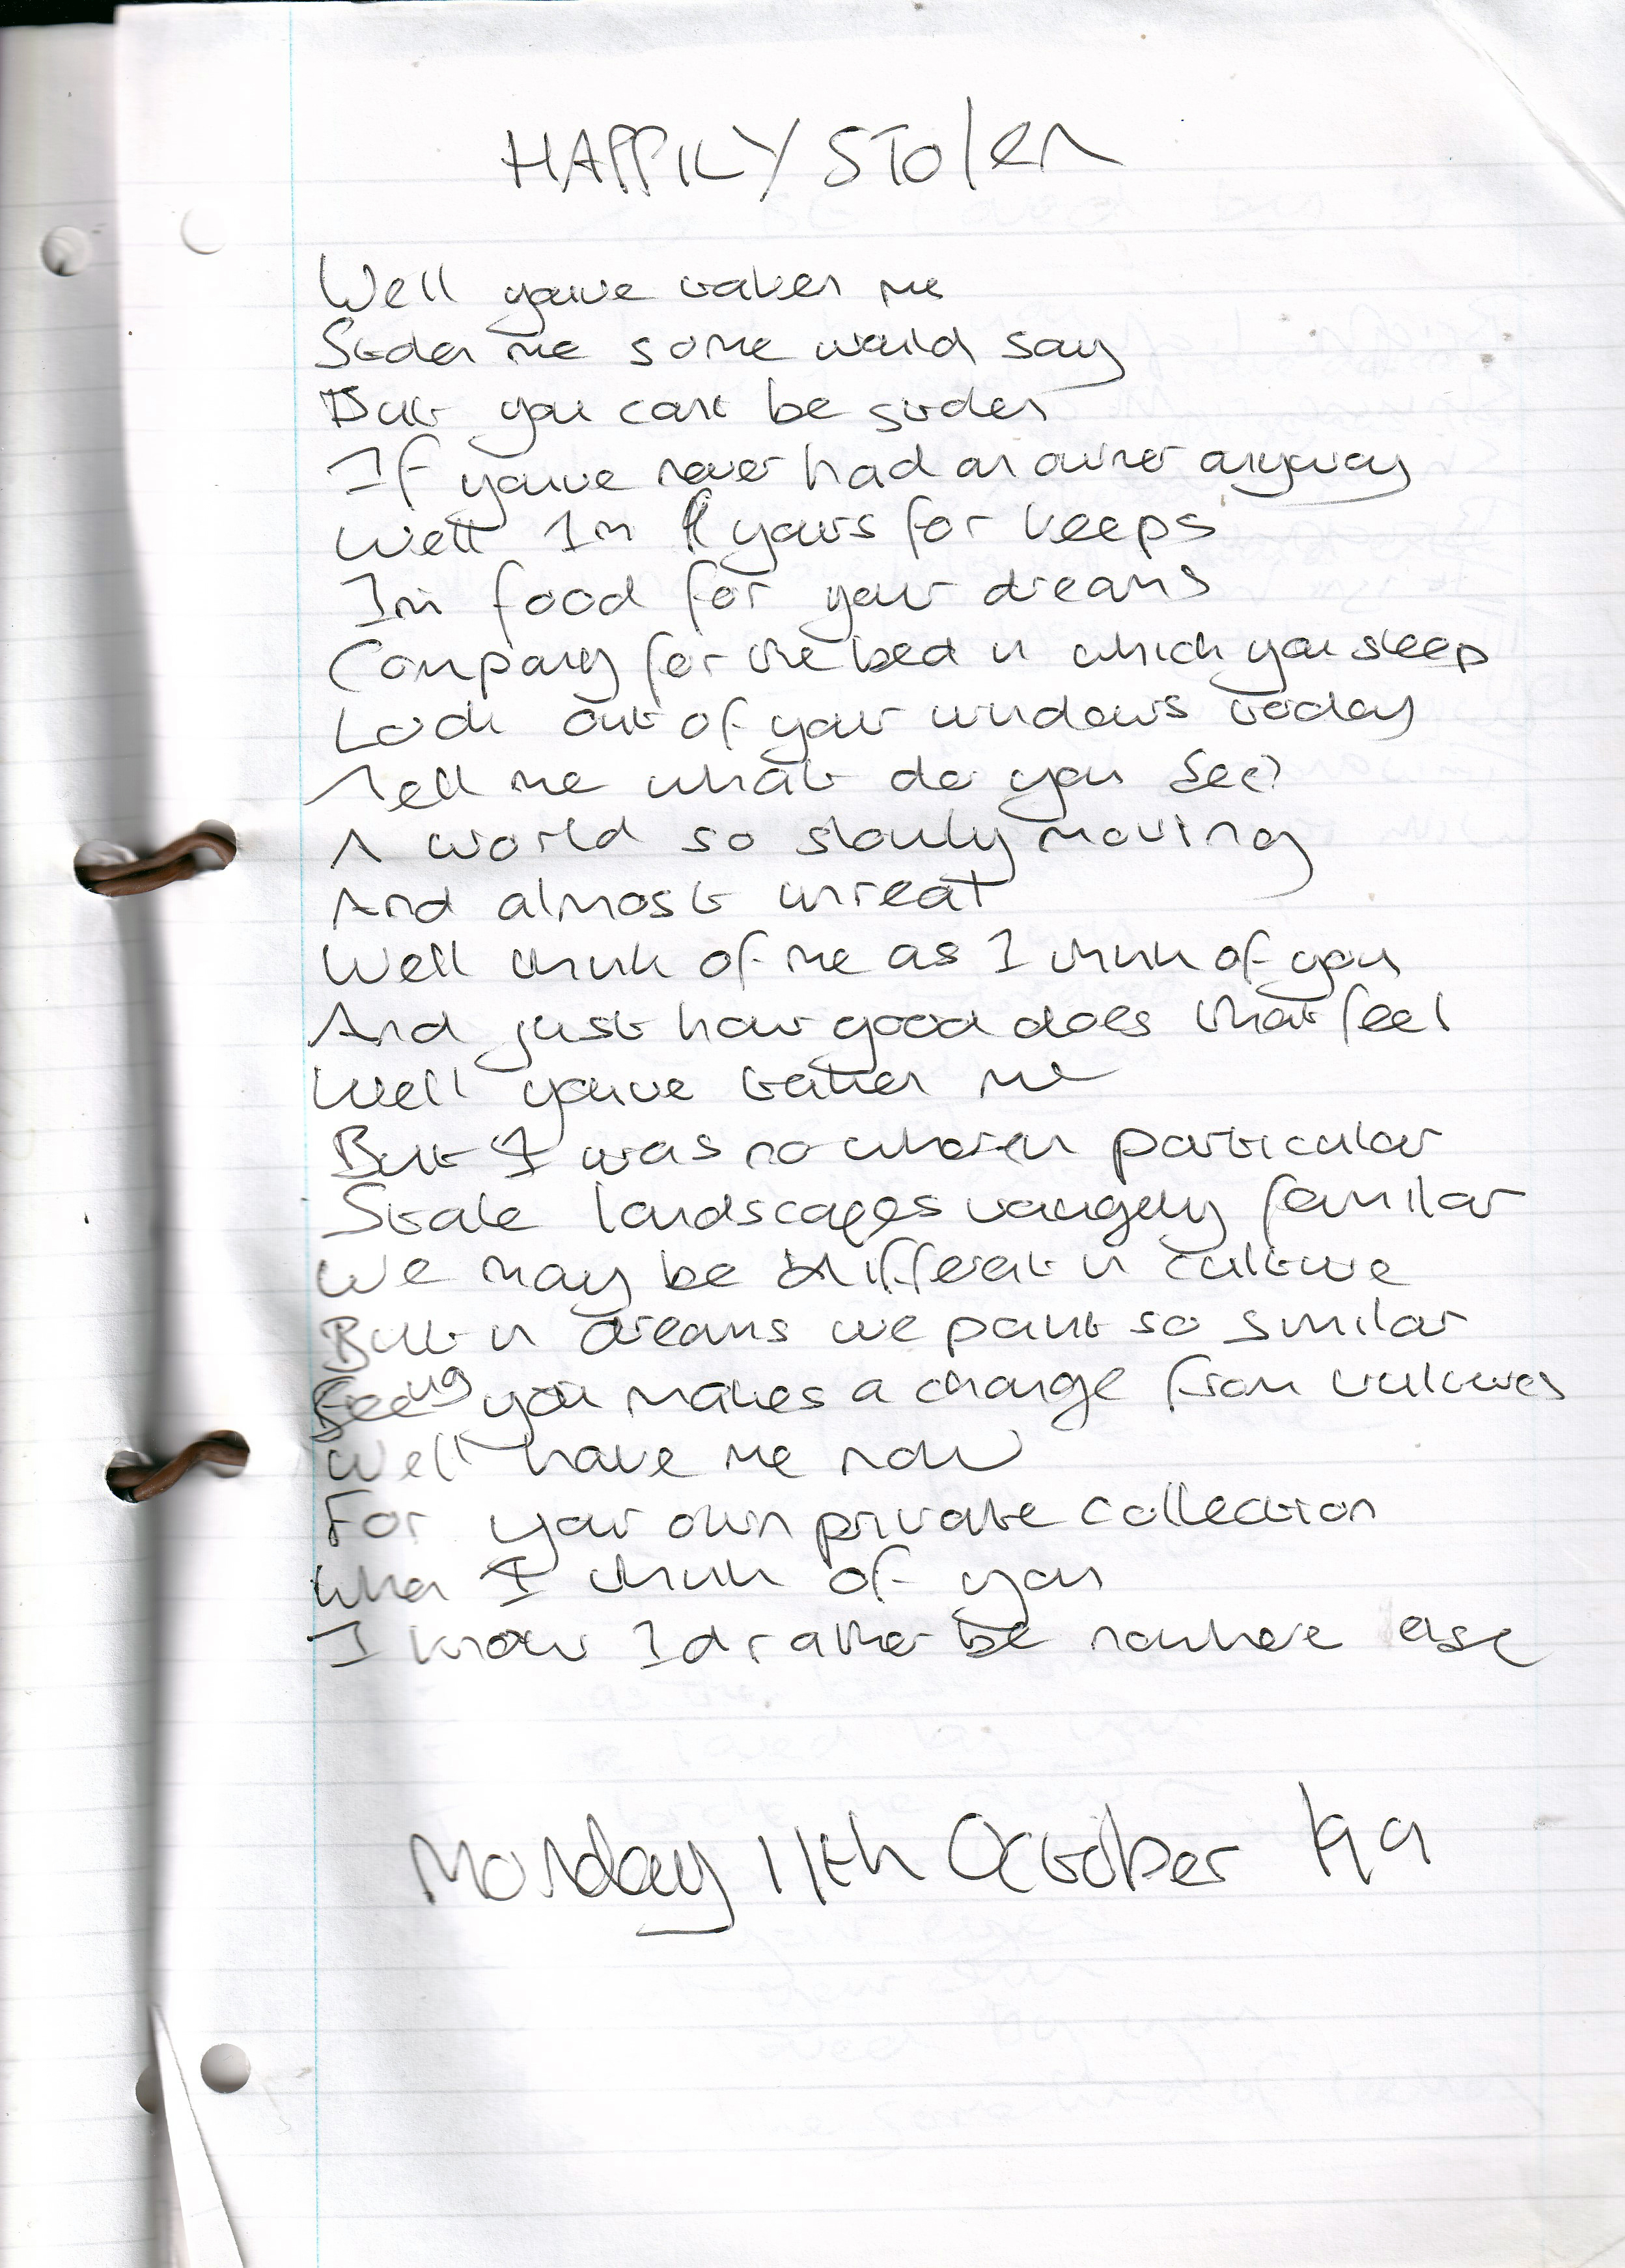 HAPPILY STOlEN
Well youve taken me
Stolen me some would say
But you cant be stolen
If youve never had an owner anyway
Well Im yours for keeps
Im food for your dreams
Company for the bed in which you sleep
Look out of your windows today
Tell me what do you see?
A world so slowly moving
And almost unreal
Well think of me as I think of you
And just how good does that feel
Well youve taken me
But I was no where in particular
Stale landscapes vaugely familar
We may be different in culture
But in dreams we paint so similar
you makes a change from vultures
Well have me now
For your own private collection
When I think of you
I know Id rather be nowhere else
Monday 11th October 1999